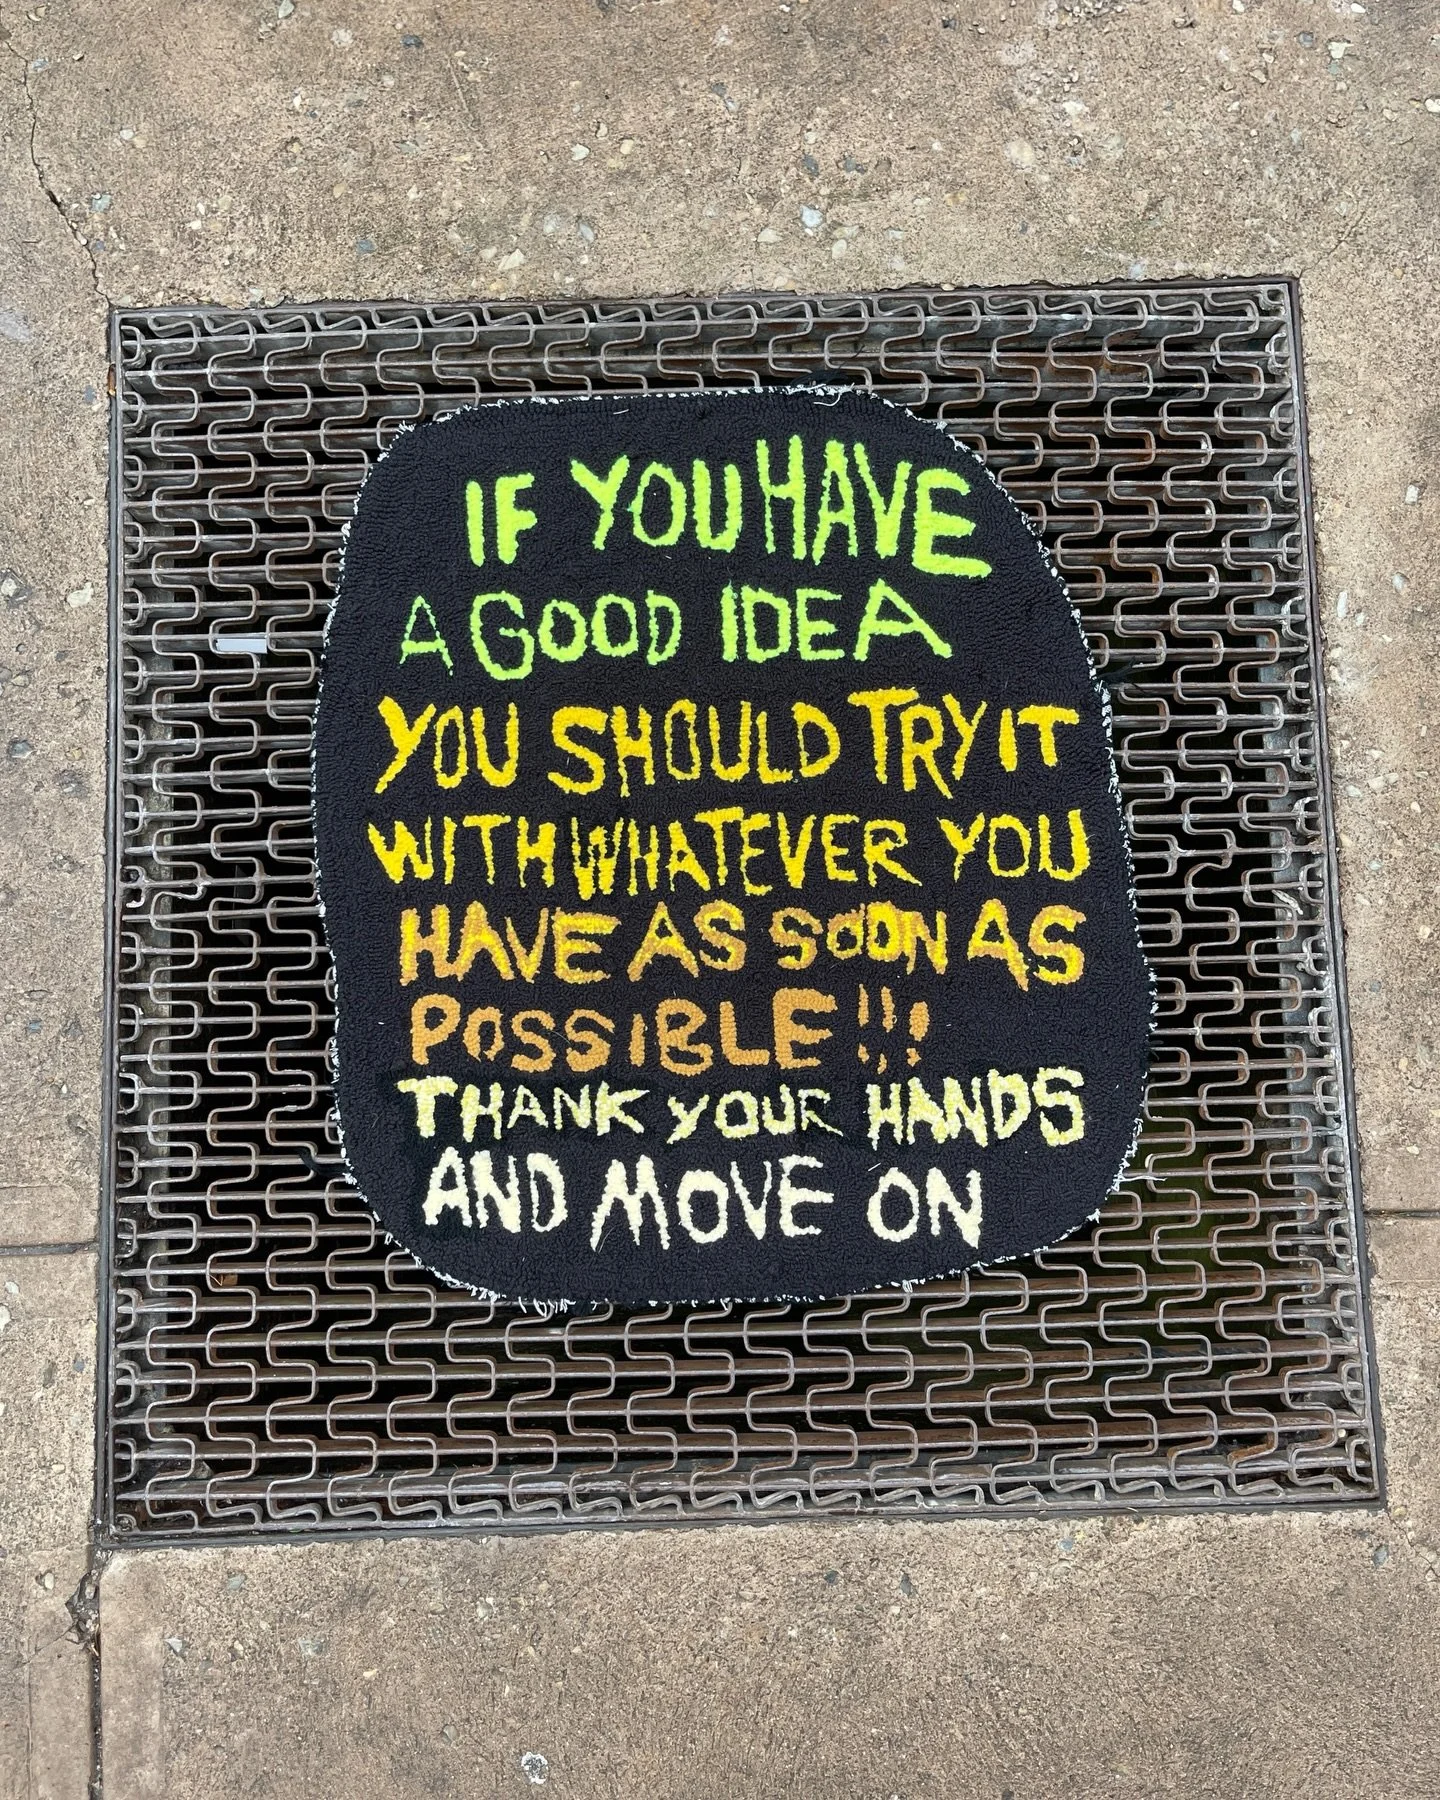 IF YOU HAVE
A GOOD IDEA
YOU SHOULD TRY IT
WITH WHATEVER YOU
HAVE AS SOON AS
POSSIBLE!!!
THANK YOUR HANDS
AND MOVE ON